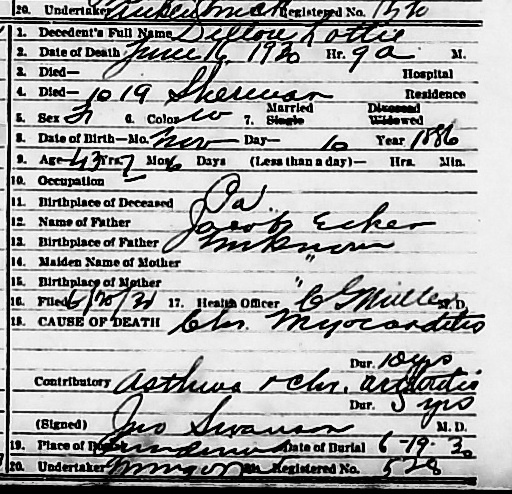 20. Undertaker Registered No.
1. Decedent's Full Name Dillow Lottie
2. Date of Death June 16, 1930 Hr. 9 a M.
3. Died— Hospital
4. Died— 1019 Sherman Residence
5. Sex F 6. Color W 7. Married Single Divorced Widowed
8. Date of Birth—Mo. Nov Day— 10 Year 1886
9. Age 43 Yrs. 7 Mos. 6 Days (Less than a day)— Hrs. Min.
10. Occupation —
11. Birthplace of Deceased Pa.
12. Name of Father Jacob Ecker
13. Birthplace of Father Unknown
14. Maiden Name of Mother "
15. Birthplace of Mother "
16. Filed 6/20/30 17. Health Officer C G Miller M. D.
18. CAUSE OF DEATH Chr. Myocarditis
Dur. 10 yrs
Contributory Asthma + chr. arthritis
Dur. 5 yrs
(Signed) Jno Swanson M. D.
19. Place of Date of Burial 6-19-30
20. Undertaker Registered No. 528